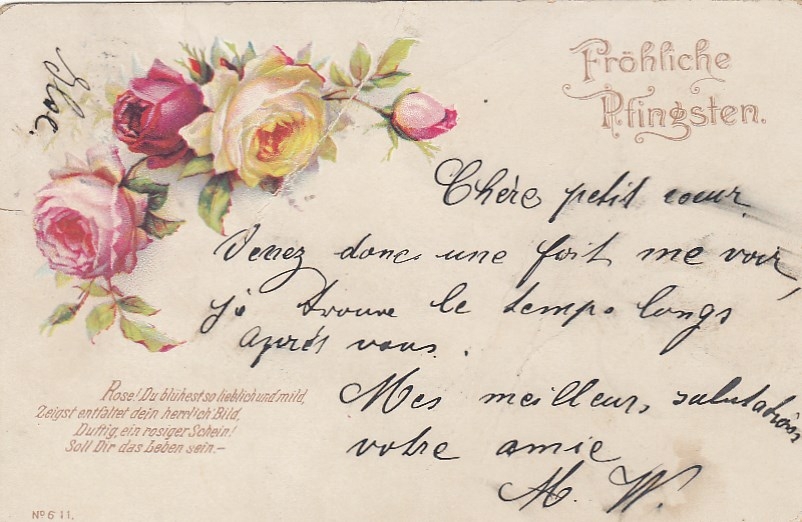 Fröhliche
Pfingsten.
Chère petit coeur
Venez donc une foit me voir,
je trouve le temps longs
après vous.
Mes meilleurs salutations
votre amie
M. W.
Rose! Du blühest so lieblich und mild,
Zeigst entfaltet dein herrlich Bild,
Duftig, ein rosiger Schein!
Soll Dir das Leben sein.—
No 611.